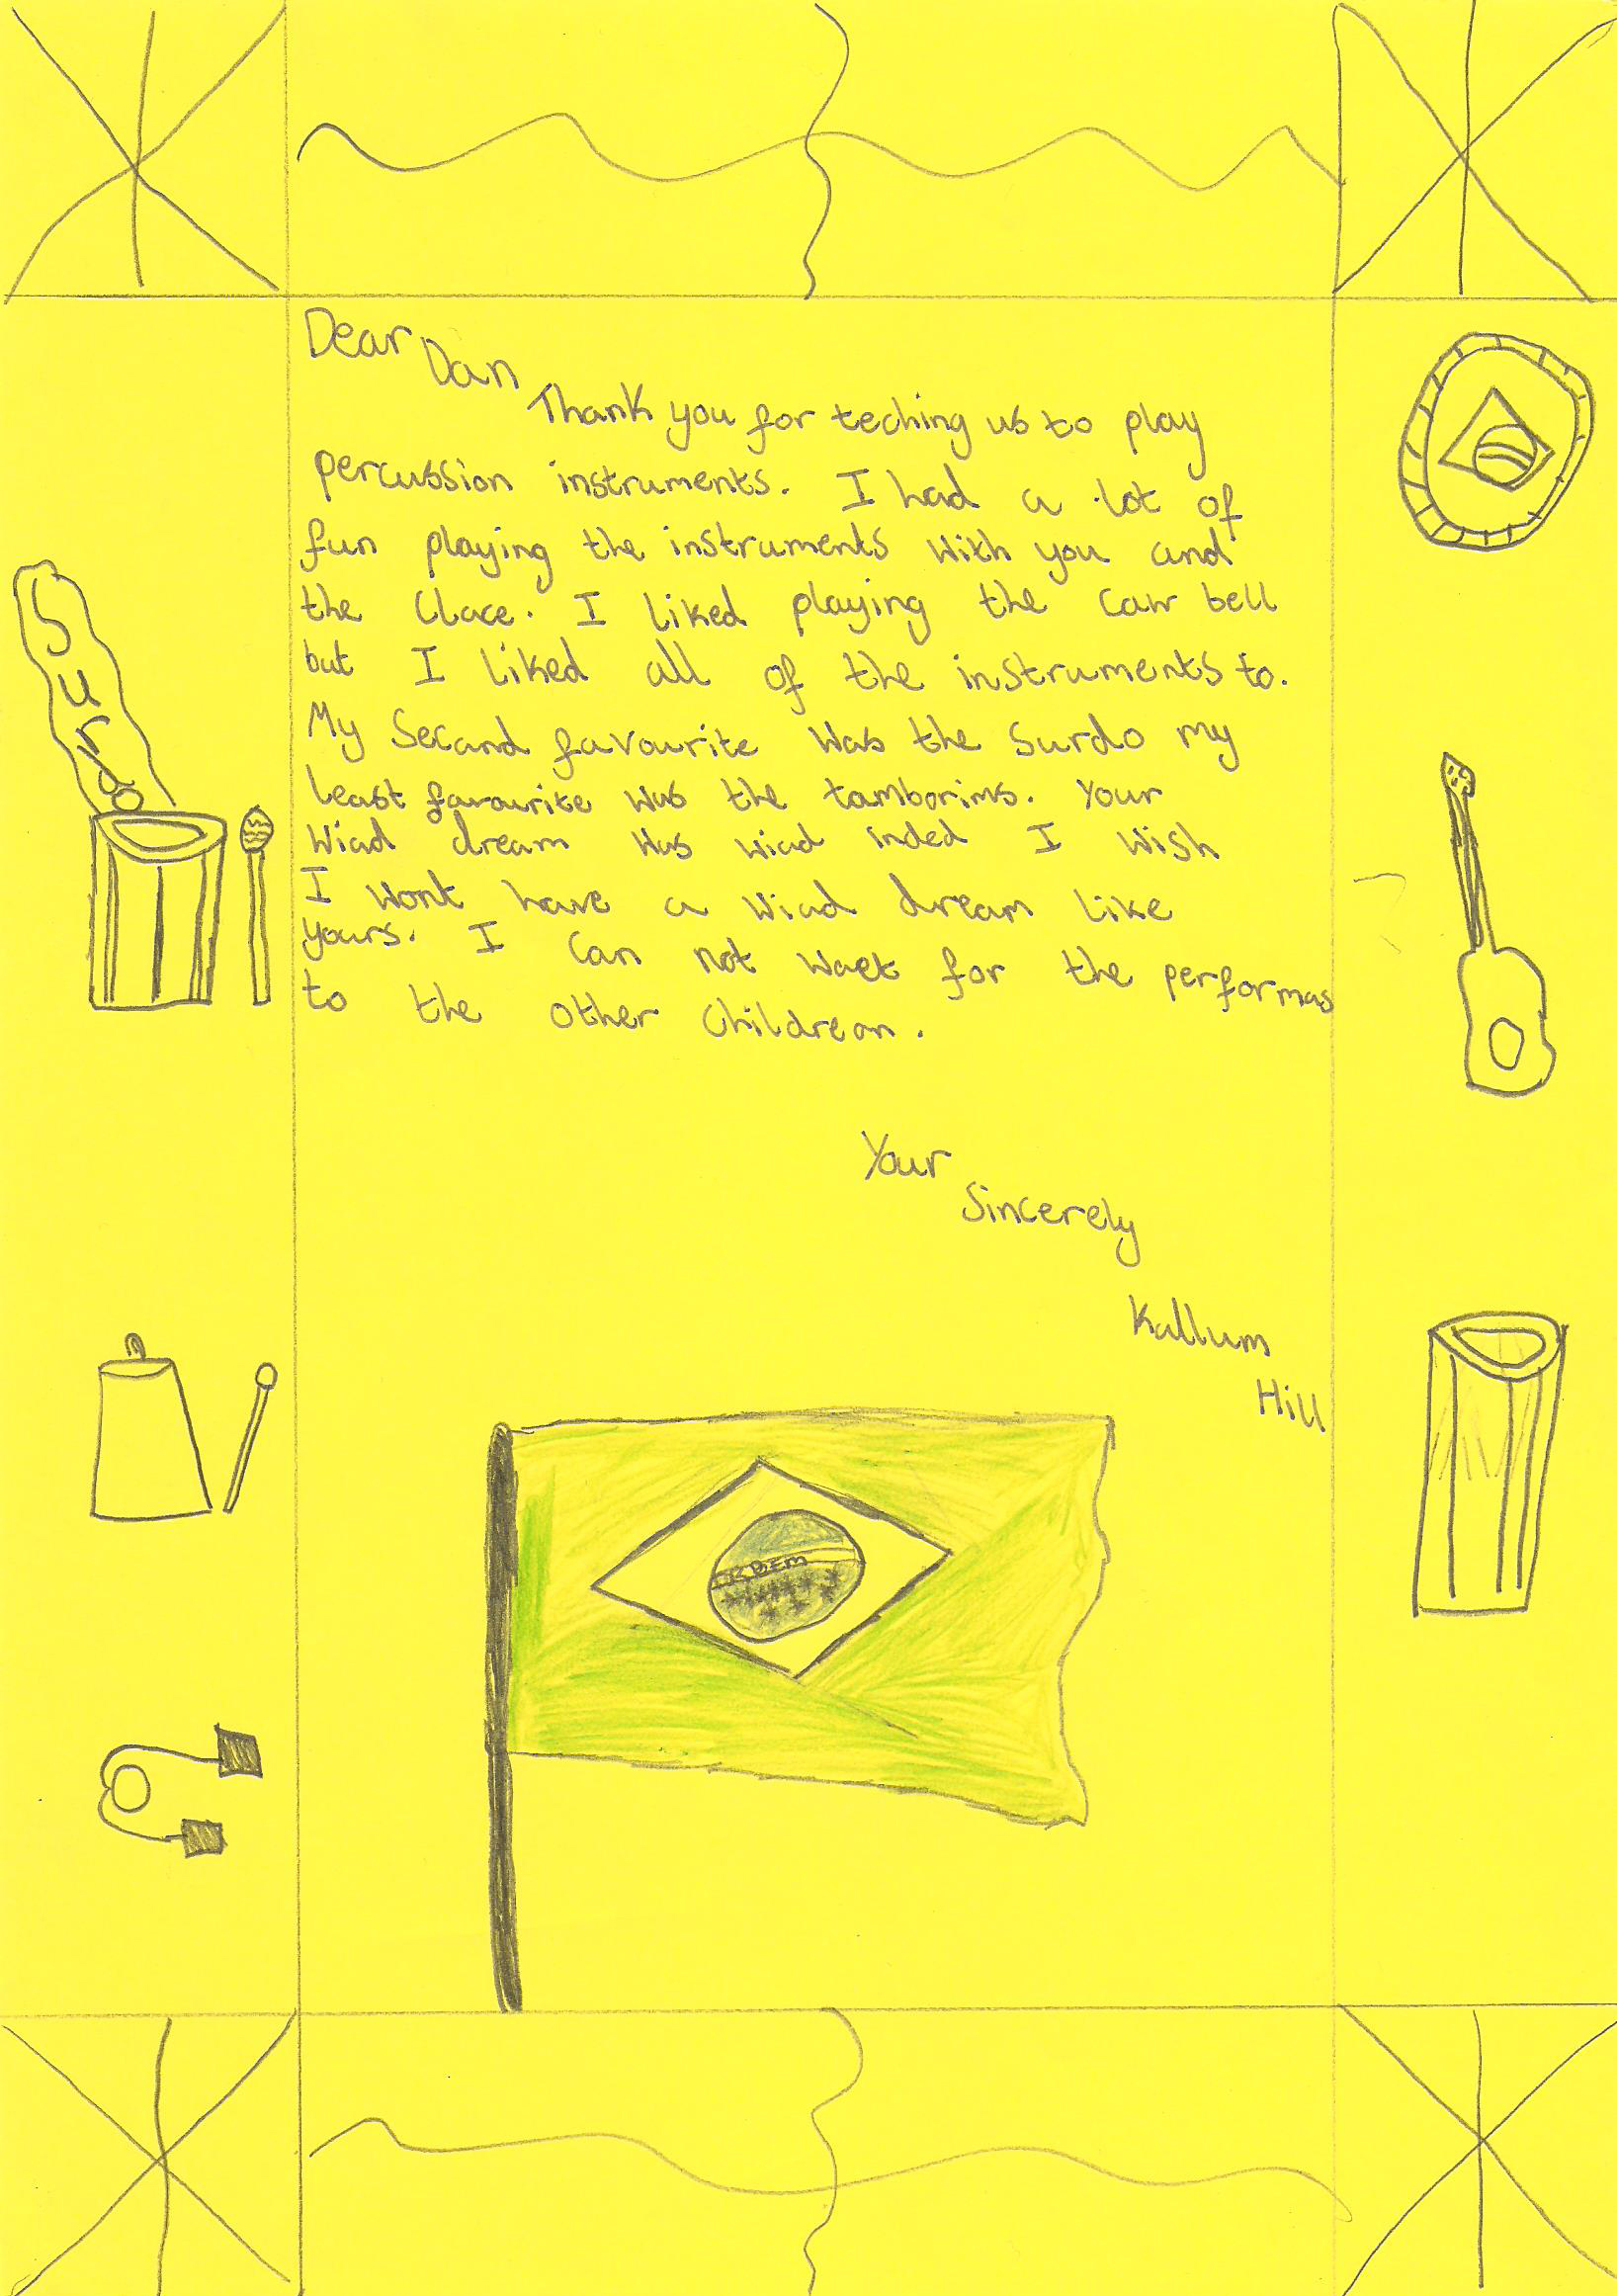 Dear Dan
Thank you for teching us to play
percussion instruments. I had a lot of
fun playing the instruments with you and
the Clace. I liked playing the Caw bell
but I liked all of the instruments to.
My Second favourite was the Surdo my
least favourite was the tamborims. Your
Wiad dream was wiad inded I wish
I wont have a wiad dream like
yours. I Can not waet for the performas
to the other Childrean.
Your
Sincerely
Kallum
Hill
Surdo